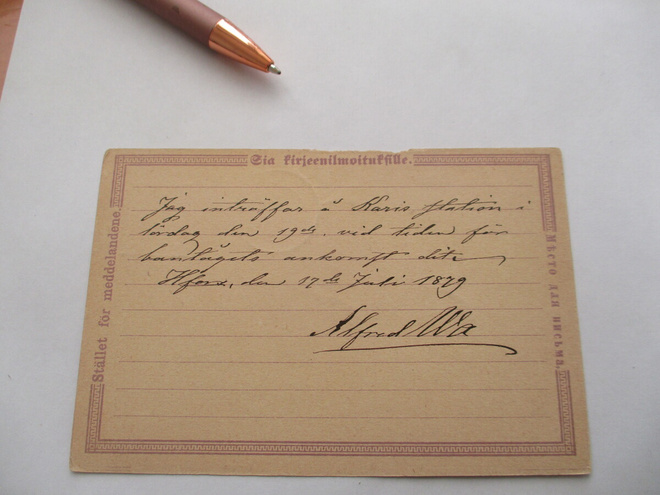 Sia kirjeenilmoituksille.
Jag inträffar å Karis station i
lördag den 19de. vid tiden för
bantågets ankomst dit.
H:fors, den 17de Juli 1879
Alfred Wa
Stället för meddelandene.
Мѣсто для письма.